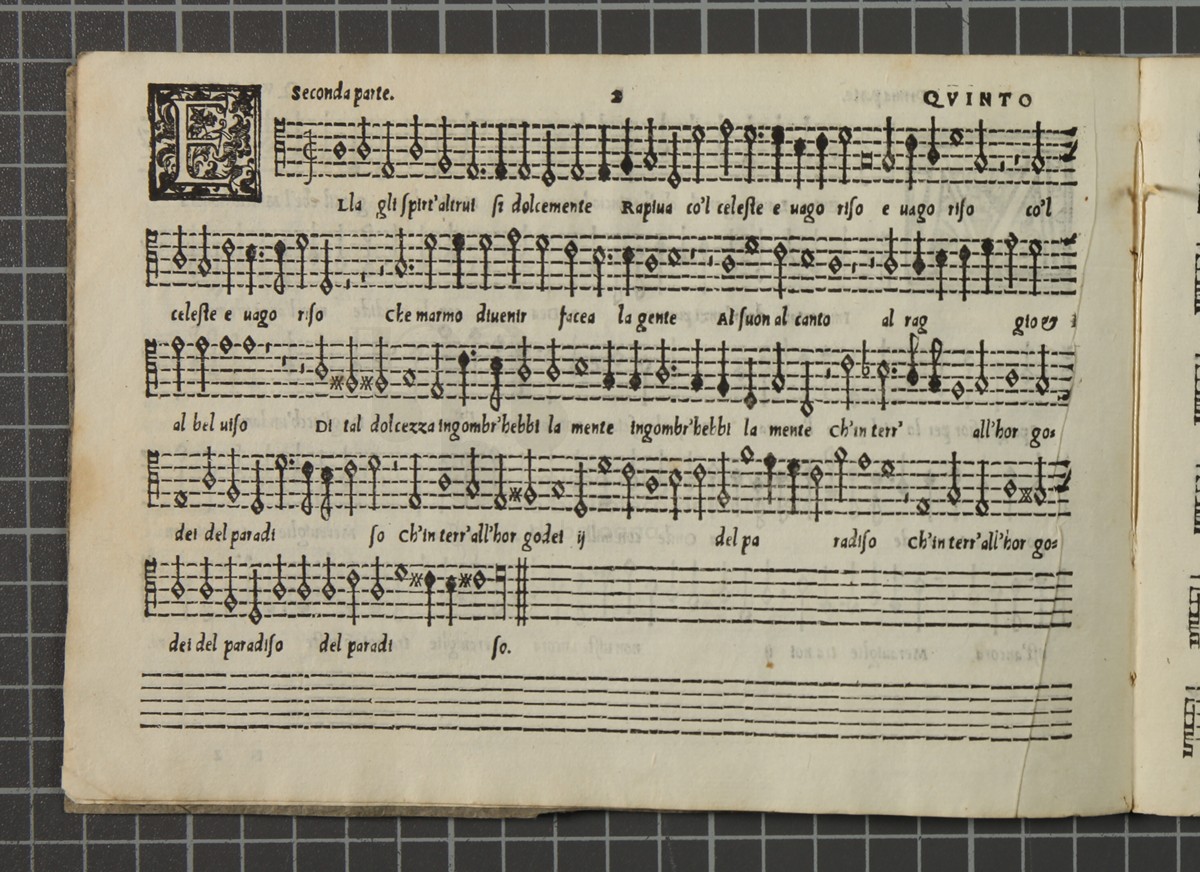 Seconda parte. 2 QVINTO
ELla gli spirt'altrui sì dolcemente Rapiua co'l celeste e uago riso e uago riso co'l
celeste e uago riso Che marmo diuenir facea la gente Al suon al canto al rag gio &
al bel uiso Di tal dolcezza ingombr'hebbi la mente ingombr'hebbi la mente Ch'in terr' all'hor go=
dei del paradi so Ch'in terr'all'hor godei ij del pa radiso Ch'in terr'all'hor go=
dei del paradiso del paradi so.